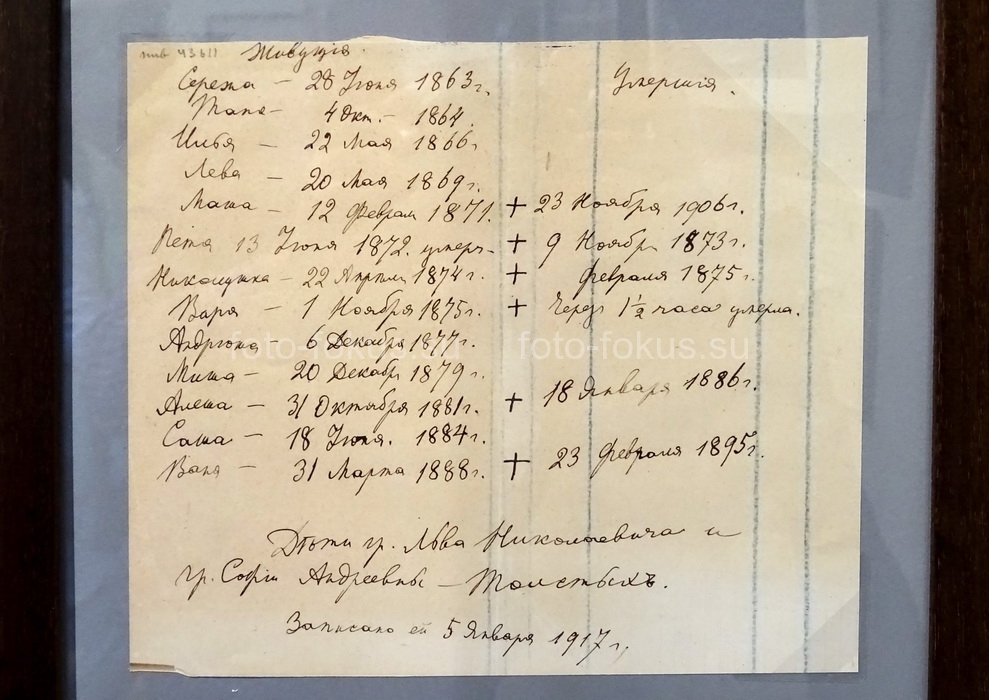 инв 43611
Живущія. Умершія.
Сережа – 28 Іюня 1863 г.
Таня – 4 Окт. – 1864.
Илья – 22 Мая 1866 г.
Лева – 20 Мая 1869 г.
Маша – 12 Феврал 1871. + 23 Ноября 1906 г.
Петя 13 Іюня 1872. умер – + 9 Ноябр 1873 г.
Николушка – 22 Апрѣля 1874 г. + Февраля 1875 г.
Варя – 1 Ноября 1875 г. + Черезъ 1 1/2 часа умерла.
Андрюша – 6 Декабря 1877 г.
foto-fokus.su foto-fokus.su
Миша – 20 Декабр 1879 г.
Алеша – 31 Октября 1881 г. + 18 Января 1886 г.
Саша – 18 Іюня. 1884 г.
Ваня – 31 Марта 1888 г. + 23 Февраля 1895 г.
Дѣти гр. Льва Николаевича и
гр. Софіи Андреевны – Толстыхъ.
Записано ей 5 Января 1917 г.